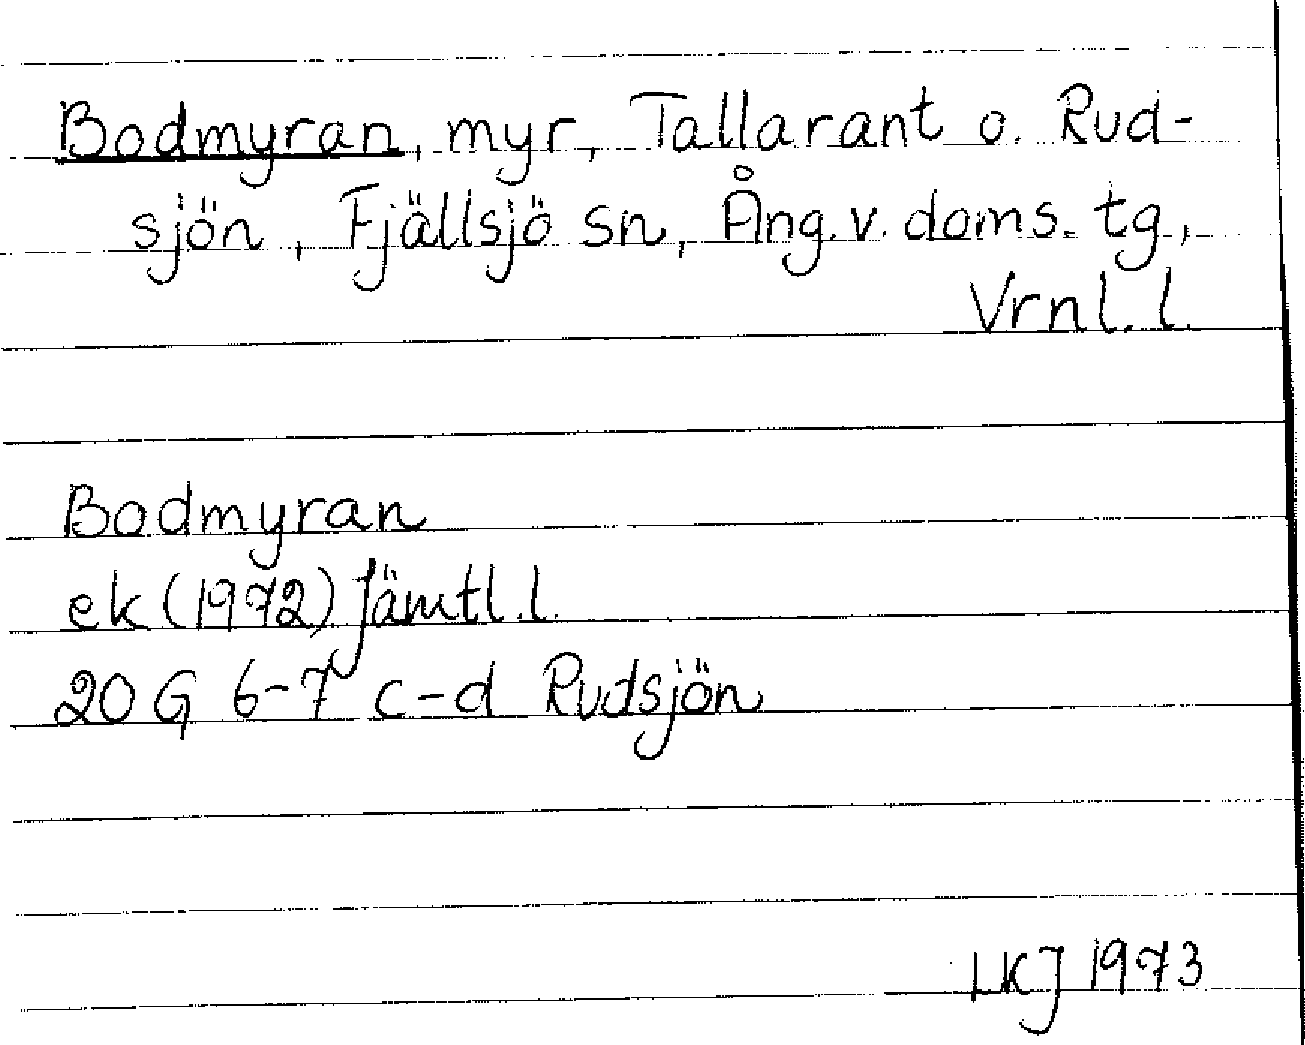 Bodmyran, myr, Tallarant o. Rud-
sjön, Fjällsjö sn, Ång. v. doms. tg,
Vrnl. l.
Bodmyran
ek (1972) Jämtl. l.
20 G 6-7 c-d Rudsjön
LKJ 1973